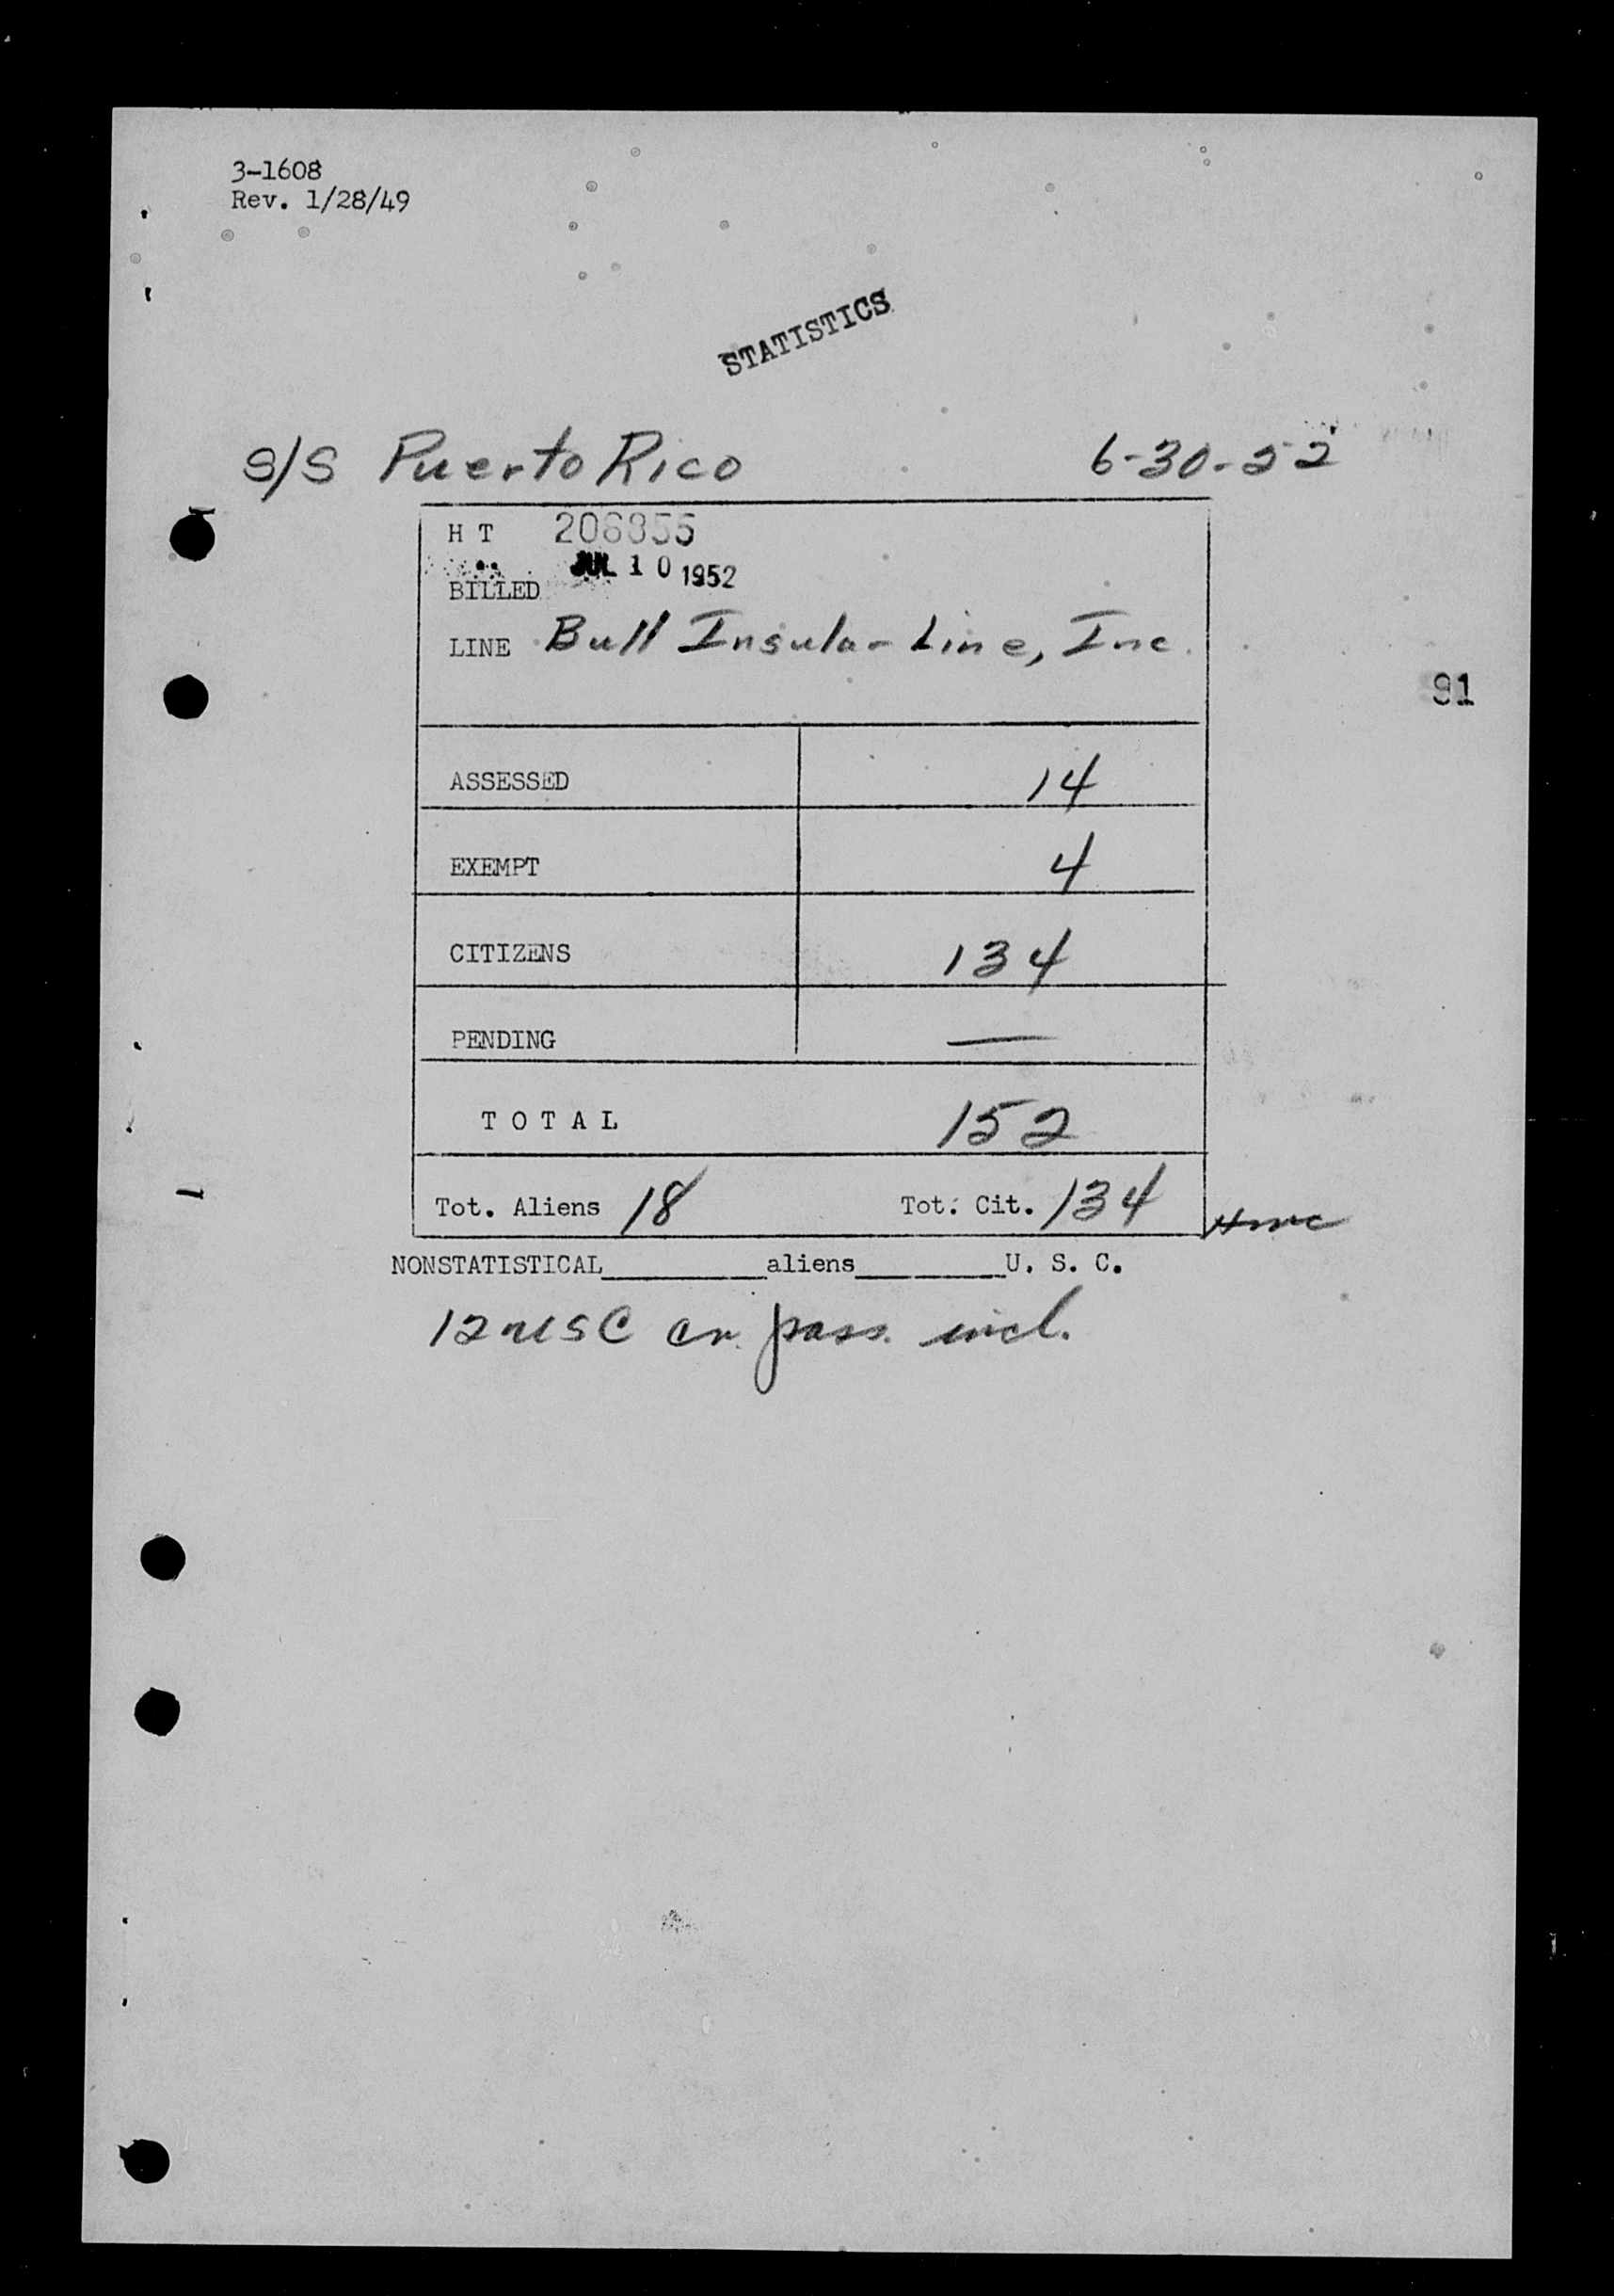 3-1608
Rev. 1/28/49
STATISTICS
S/S Puerto Rico 6-30-52
H T 206855
JUL 10 1952
BILLED
LINE Bull Insular Line, Inc.
91
ASSESSED 14
EXEMPT 4
CITIZENS 134
PENDING —
T O T A L 152
Tot. Aliens 18 Tot. Cit. 134
NONSTATISTICAL________aliens________U. S. C.
12 USC cr. pass. incl.